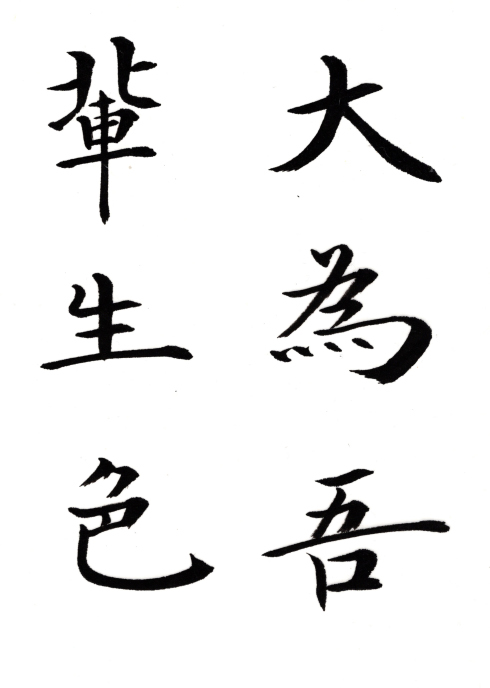 大為吾
輩生色